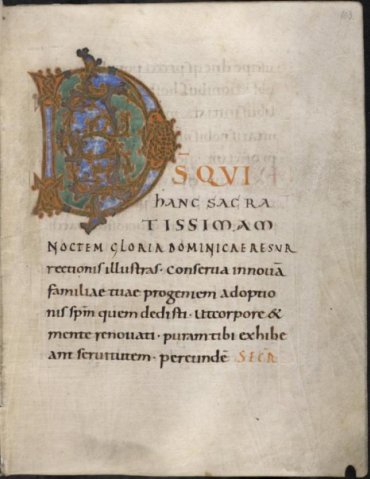 D̅S QVI
HANC SACRA
TISSIMAM
NOCTEM GLORIA DOMINICAE RESUR
rectionis illustras · conserua innouā
familiae tuae progeniem adoptio
nis sp̄m quem dedisti · ut corpore &
mente renouati · puram tibi exhibe
ant seruitutem · per eundē SECR